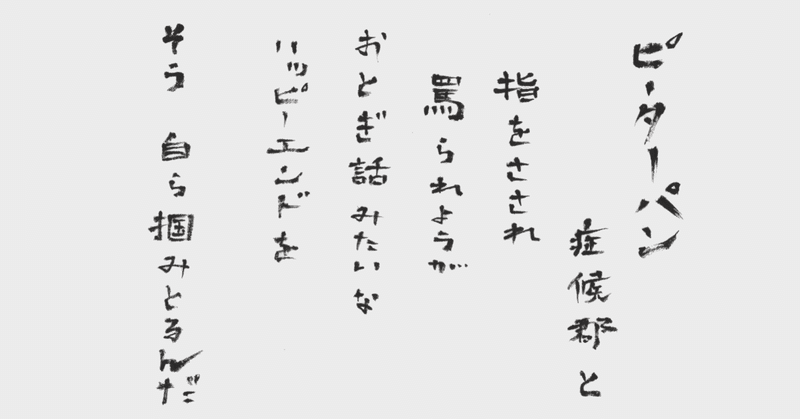 ピーターパン
症候郡と
指をさされ
罵られようが
おとぎ話みたいな
ハッピーエンドを
そう 自ら掴みとるんだ